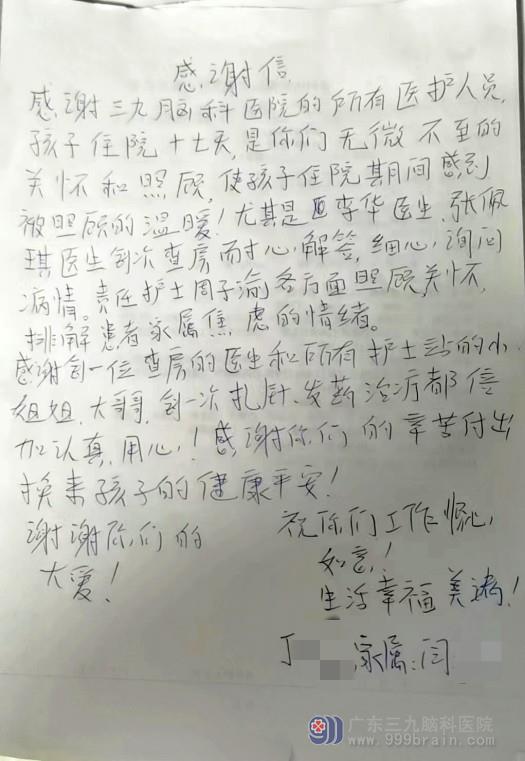 感谢信
感谢三九脑科医院的所有医护人员,
孩子住院十七天,是你们无微不至的
关怀和照顾,使孩子住院期间感到
被照顾的温暖!尤其是匡李华医生、张佩
琪医生每次查房耐心解答,细心询问
病情。责任护士周子渝各方面照顾,关怀,
排解患者家属焦虑的情绪。
感谢每一位查房的医生和所有护士站的小
姐姐、大哥,每一次扎针、发药治疗都倍
加认真,用心!感谢你们的辛苦付出
换来孩子的健康平安!
谢谢你们的
大爱!
祝你们工作顺心,
如意!
生活幸福美满!
丁 家属:闫
广东三九脑科医院
www.999brain.com